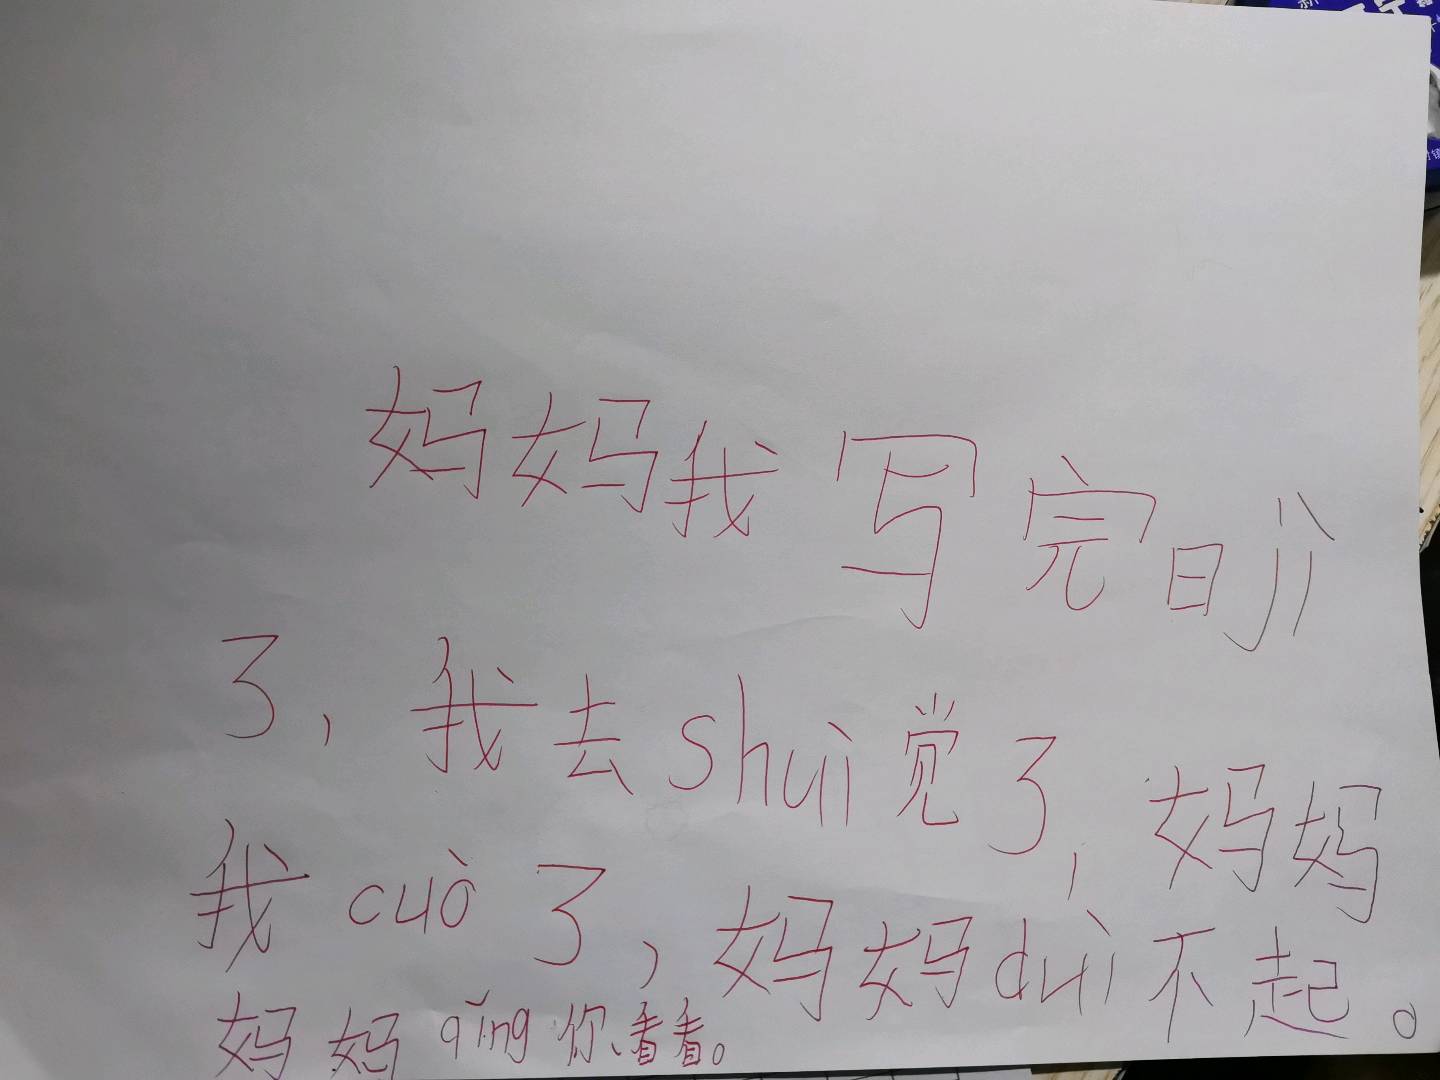 妈妈我写完日jì
了，我去shuì觉了，妈妈
我cuò了，妈妈duì不起。
妈妈qǐng你看看。